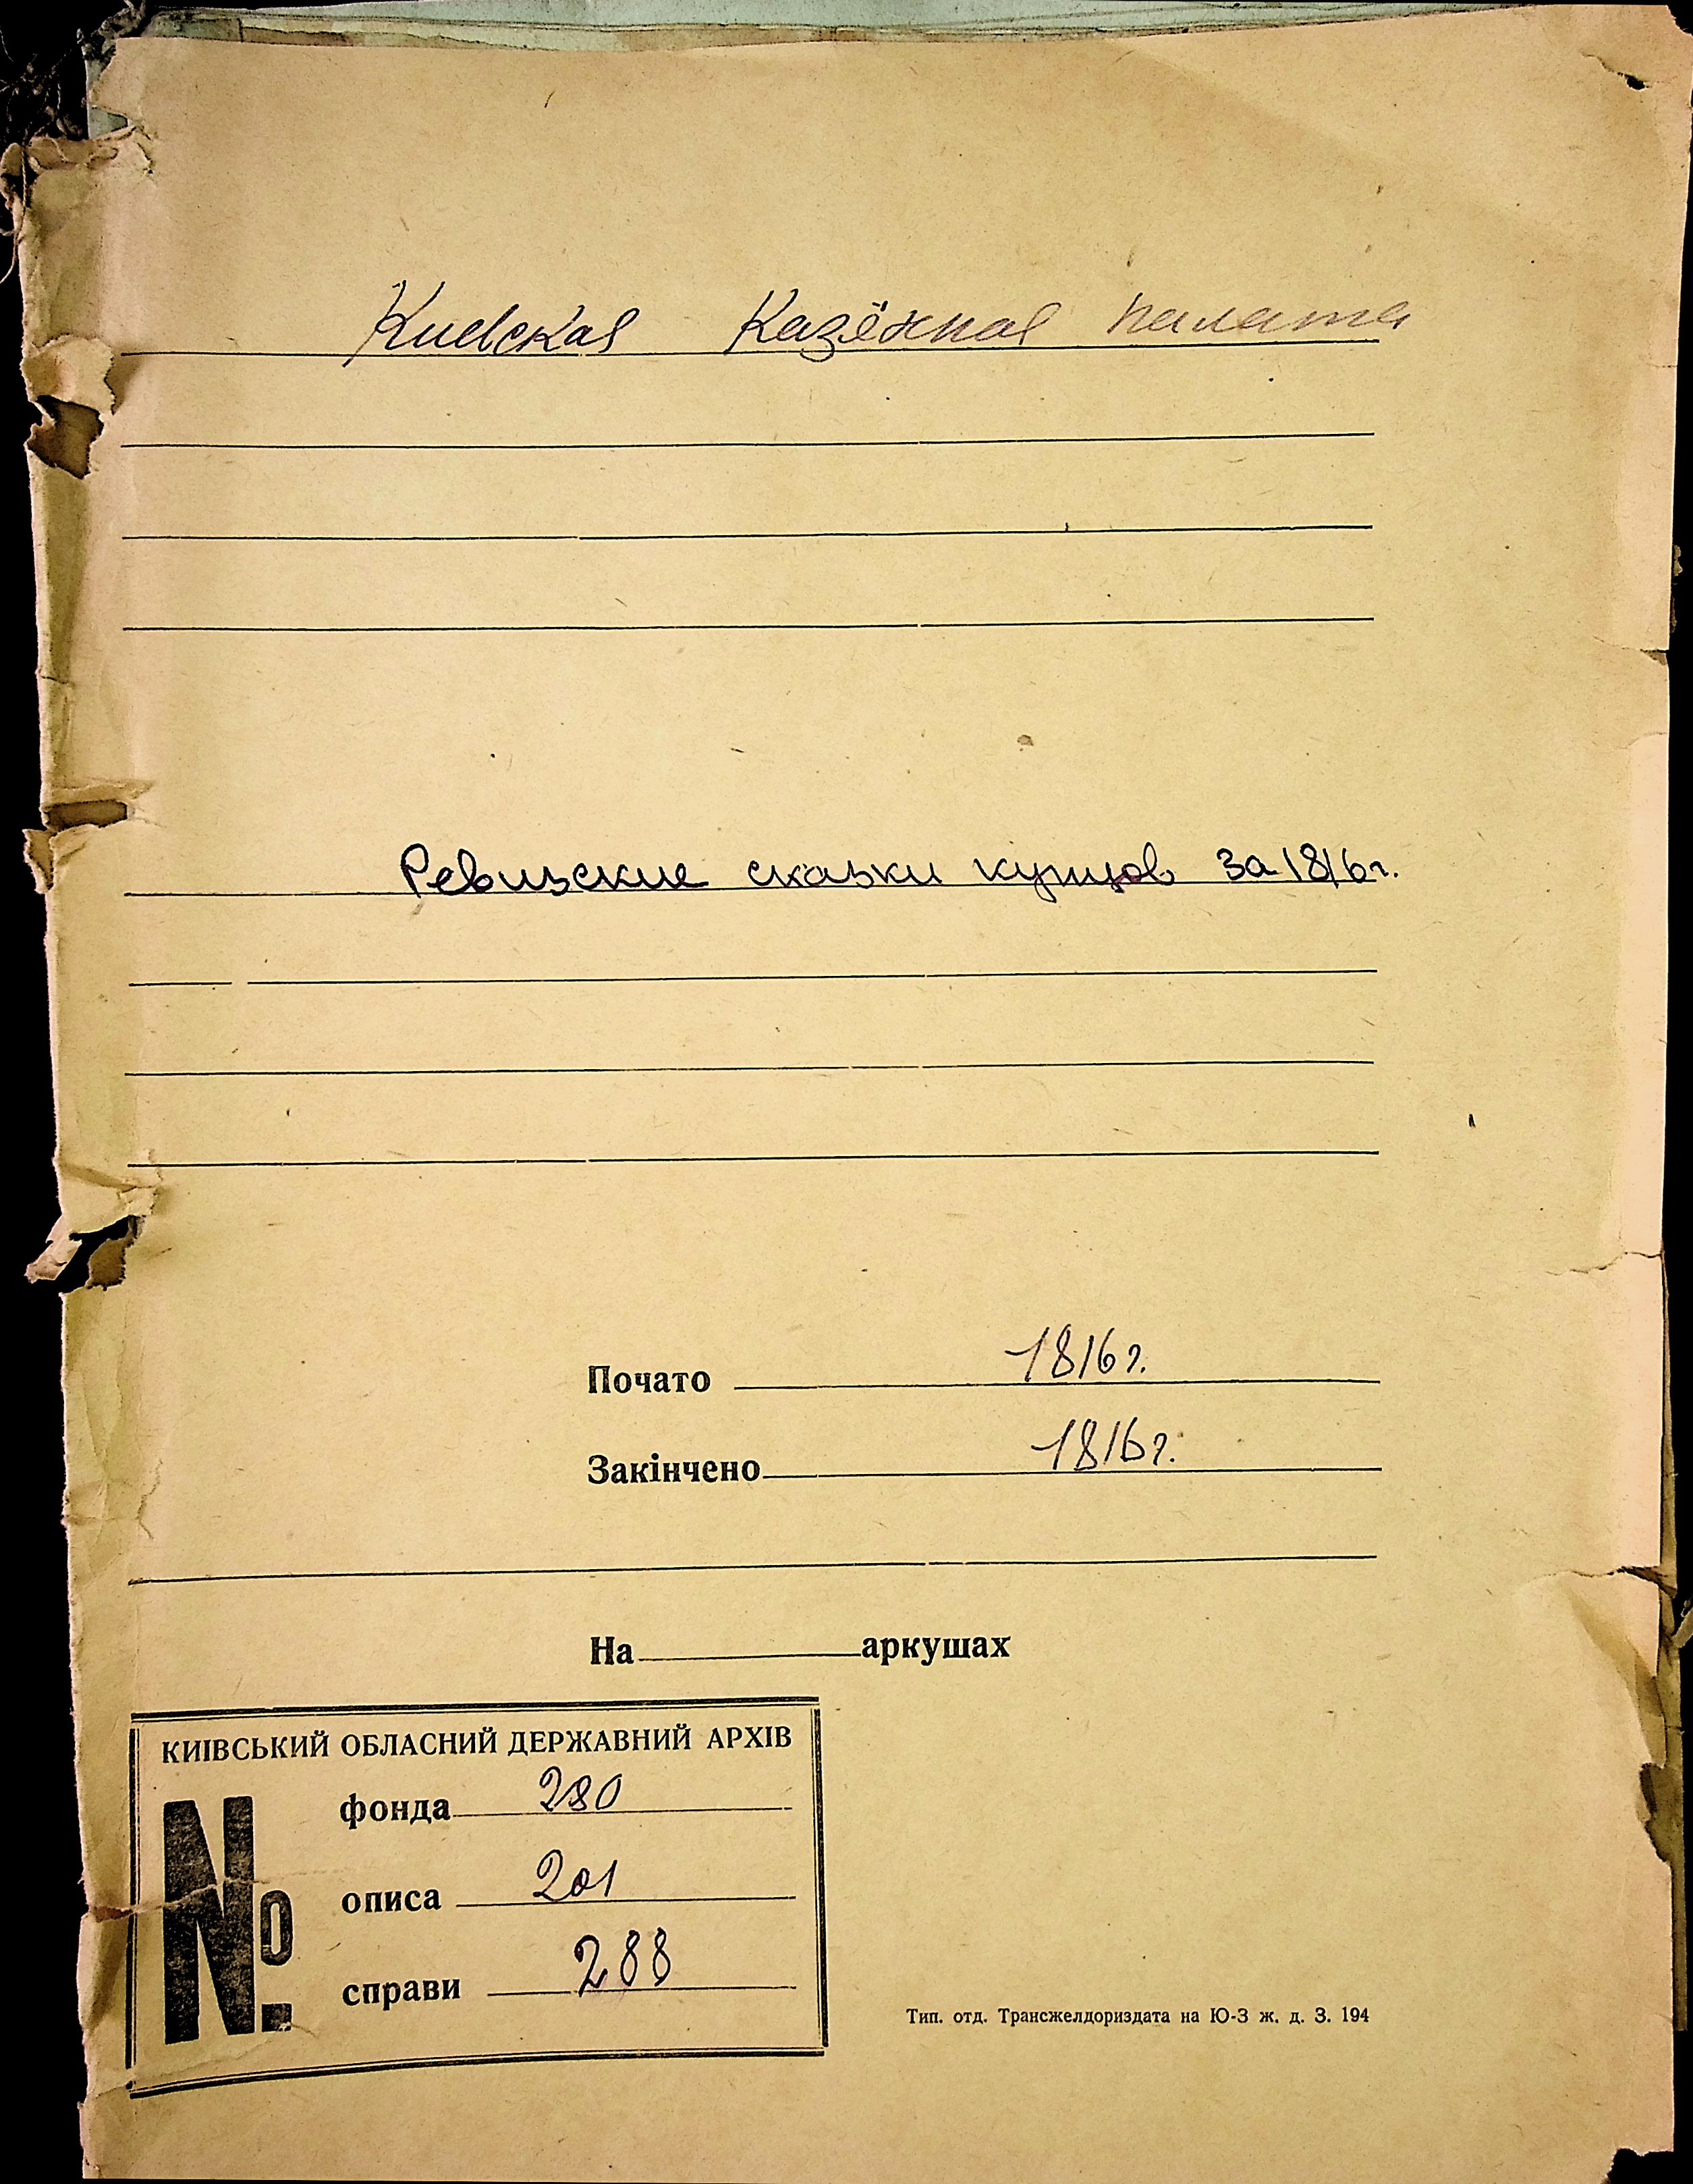 Киевская Казённая палата
Ревизские сказки купцов за 1816г.
Почато 1816г.
Закінчено 1816г.
На аркушах
КИІВСЬКИЙ ОБЛАСНИЙ ДЕРЖАВНИЙ АРХІВ
№ фонда 280
описа 201
справи 288
Тип. отд. Трансжелдориздата на Ю-З ж. д. З. 194